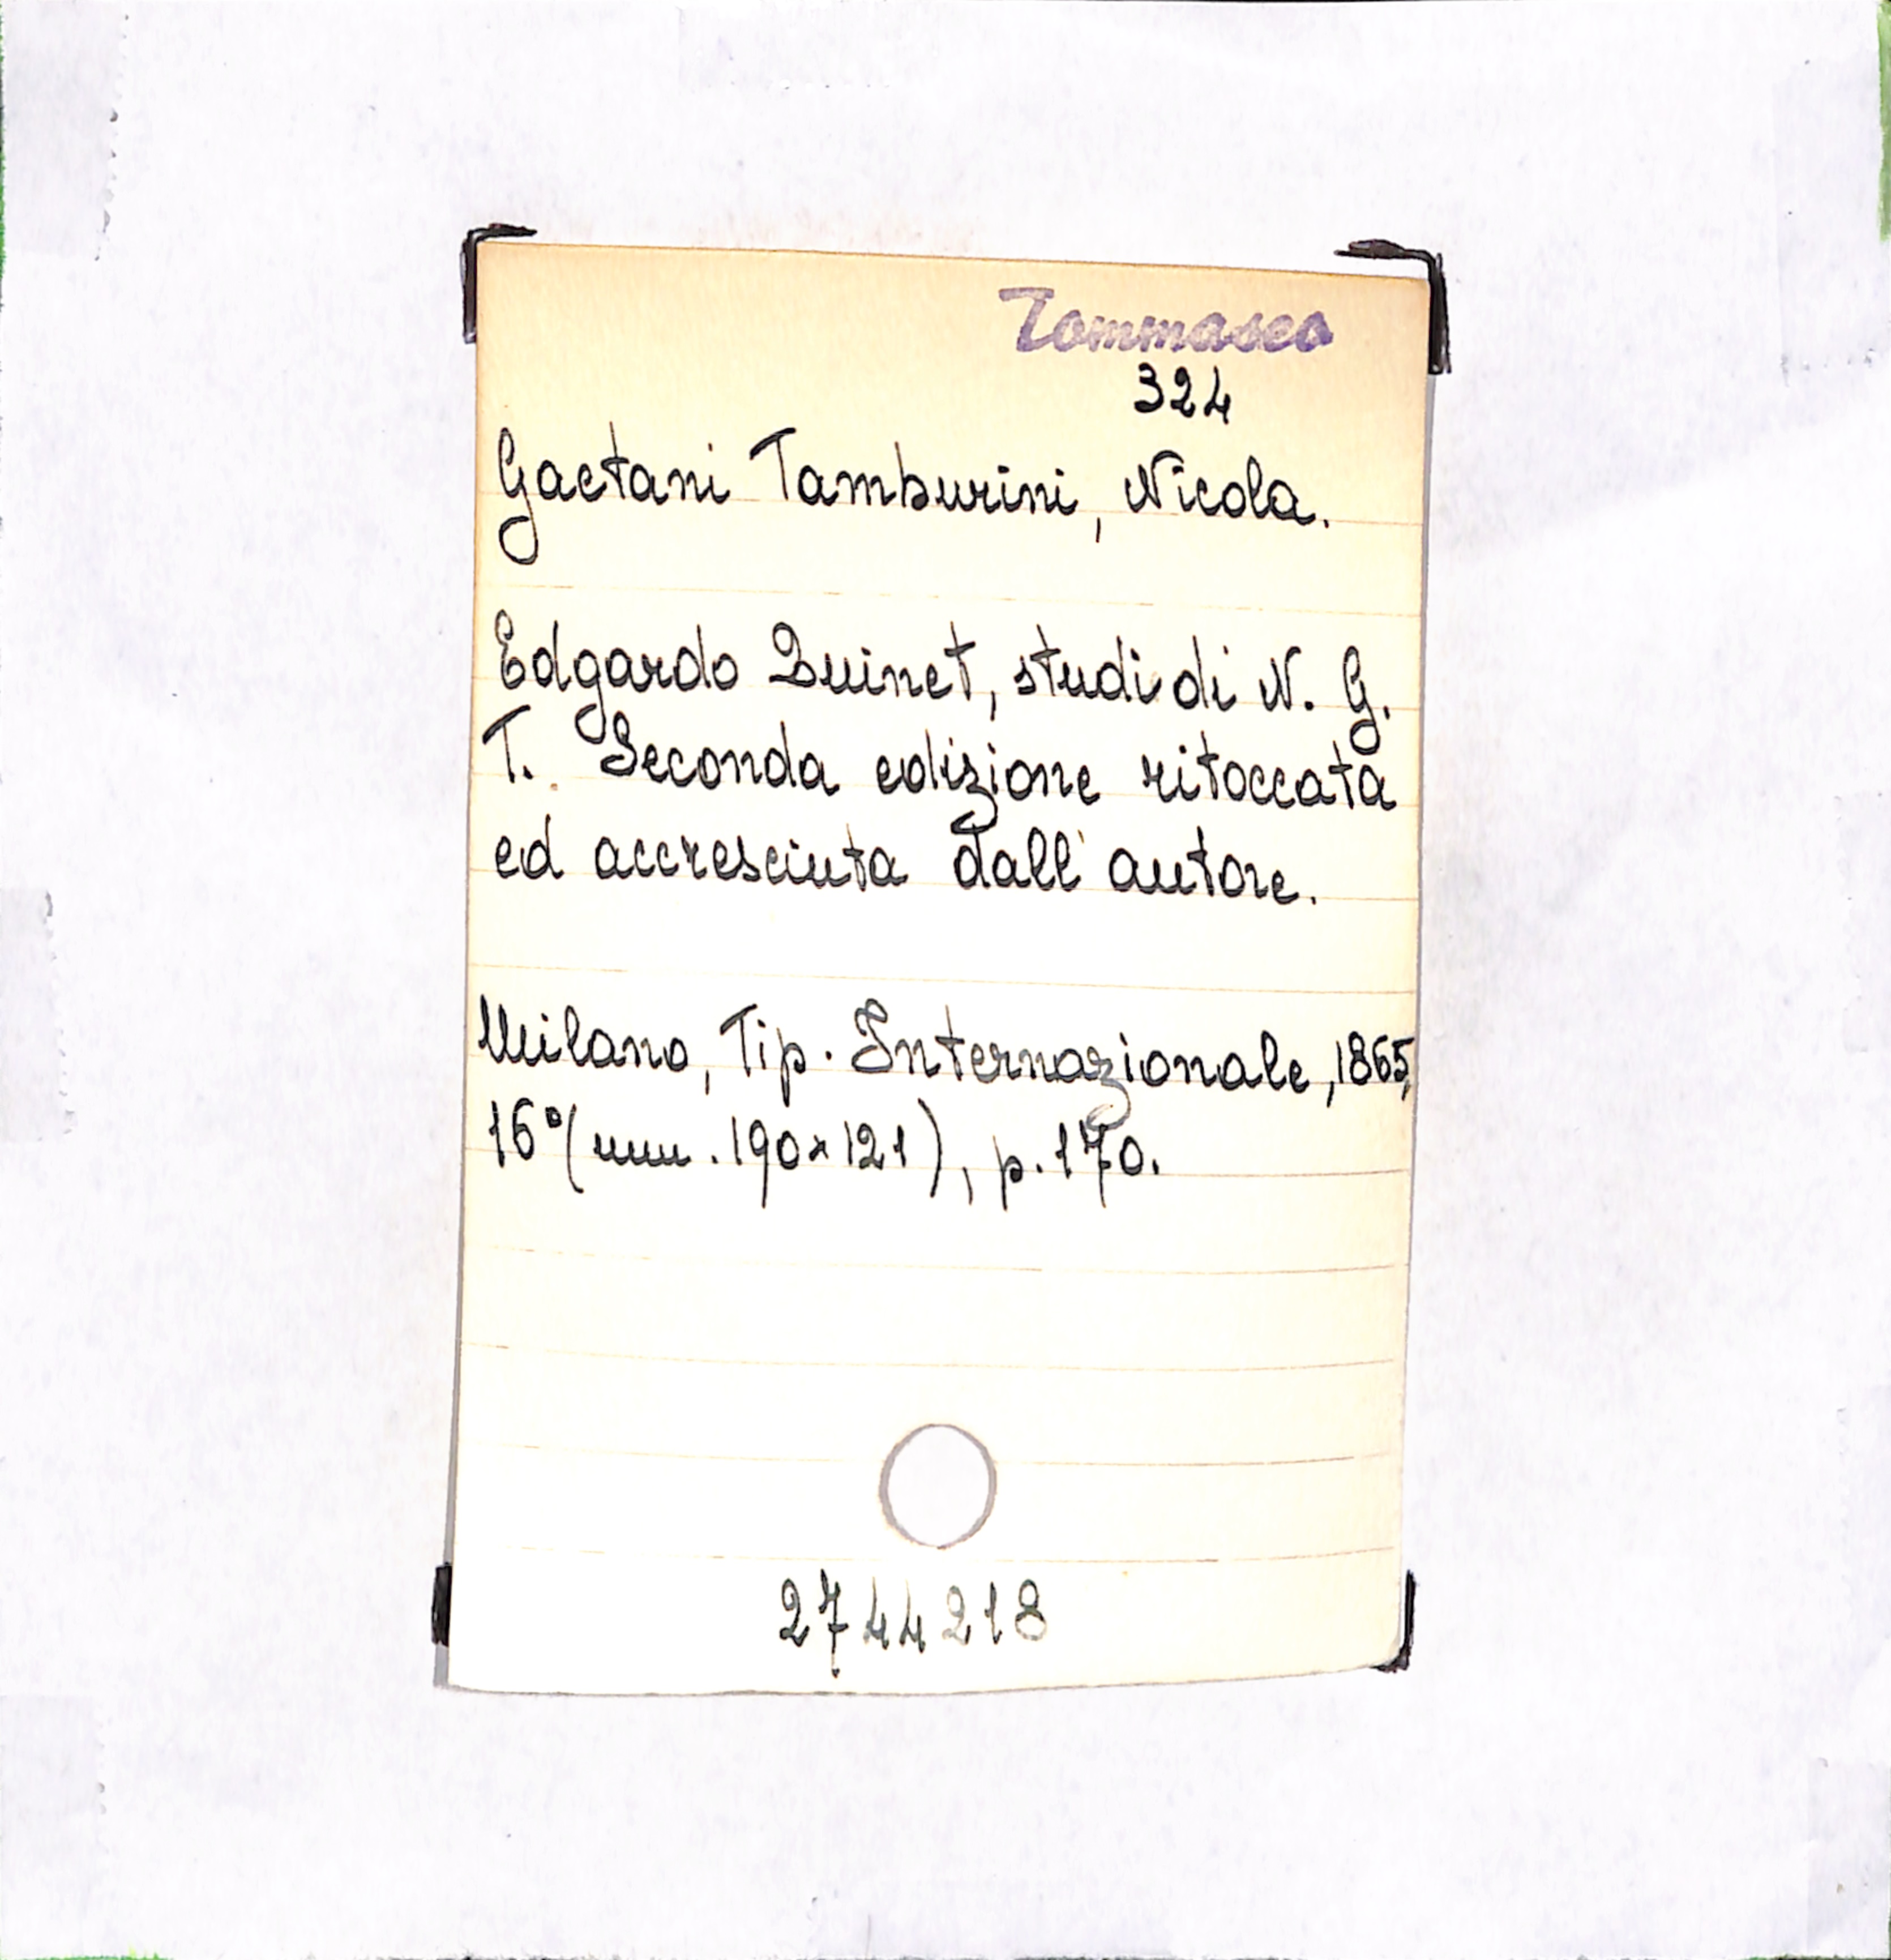 Tommaseo
324
Gaetani Tamburini, Nicola.
Edgardo Quinet, studi di N. G.
T. Seconda edizione ritoccata
ed accresciuta dall'autore.
Milano, Tip. Internazionale, 1865,
16° (mm. 190x121), p. 170.
2744218